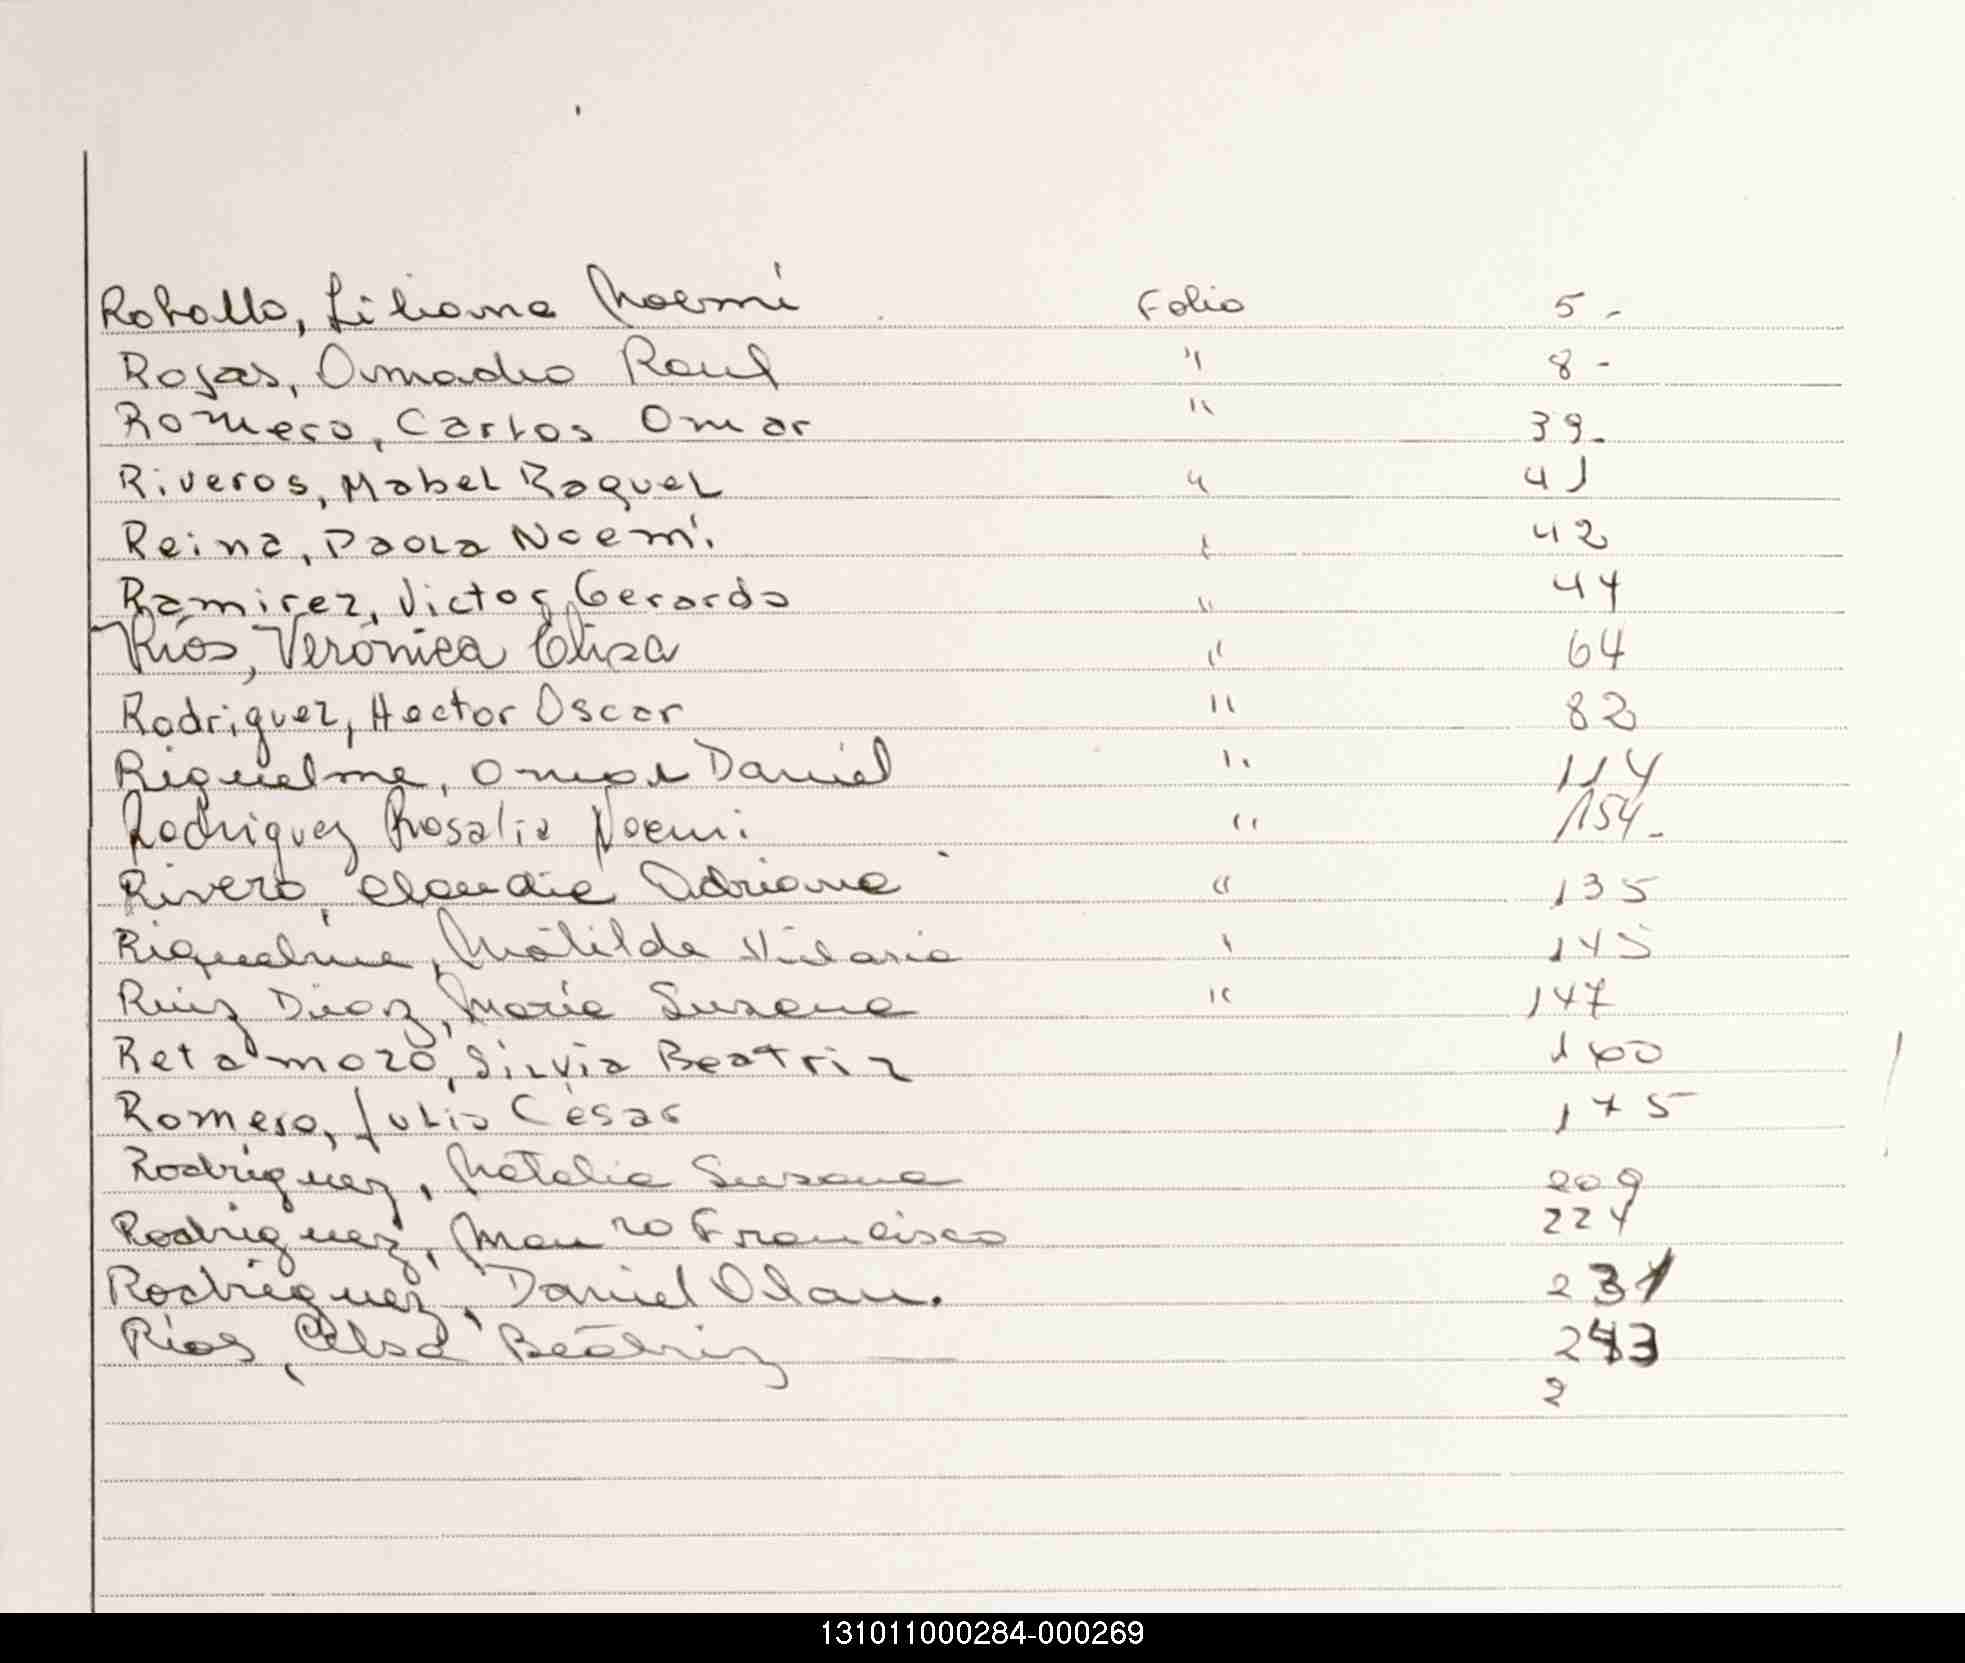 Robollo, Liliana Noemí Folio 5 -
Rojas, Amadio Raul " 8 -
Romero, Carlos Omar " 39.
Riveros, Mabel Raquel " 41
Reina, Paola Noemí " 42
Ramirez, Victor Gerardo " 44
Ríos, Verónica Elisa " 64
Rodriguez, Hector Oscar " 82
Riquelme, Omar Daniel " 114
Rodriguez Rosalia Noemi " 154-
Rivero, Claudia Adriana " 135
Riquelme, Matilde " 145
Ruiz Diaz, María Susana " 147
Retamozo, Silvia Beatriz 160
Romero, Julio César 175
Rodríguez, Natalia Susana 209
Rodríguez, Mauro Francisco 224
Rodríguez, Daniel Alan. 231
Ríos, Celsa Beatriz 243
2
131011000284-000269